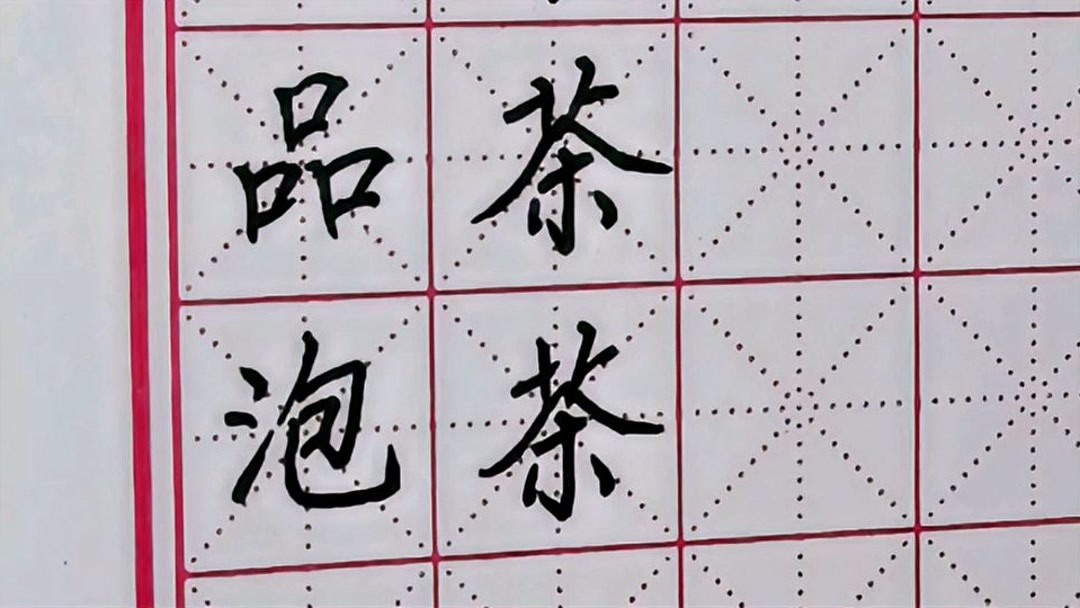 品茶
泡茶